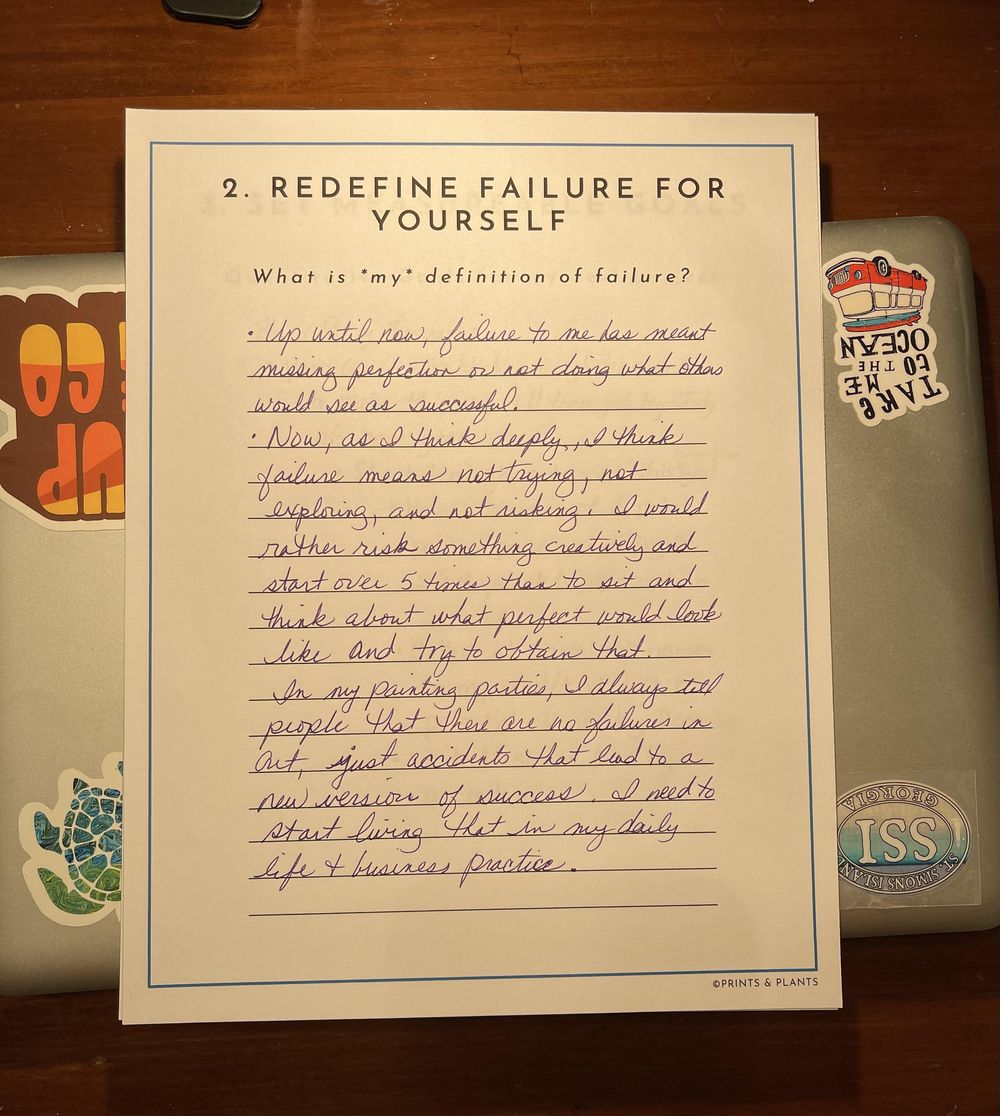 2. REDEFINE FAILURE FOR
YOURSELF
What is *my* definition of failure?
• Up until now, failure to me has meant
missing perfection or not doing what others
would see as successful.
• Now, as I think deeply, I think
failure means not trying, not
exploring, and not risking. I would
rather risk something creatively and
start over 5 times than to sit and
think about what perfect would look
like and try to obtain that.
In my painting parties, I always tell
people that there are no failures in
art, just accidents that lead to a
new version of success. I need to
start living that in my daily
life + business practice.
©PRINTS & PLANTS
TAKE
ME
TO THE
OCEAN
GEORGIA
SSI
ST. SIMONS ISLAND
CO
UP